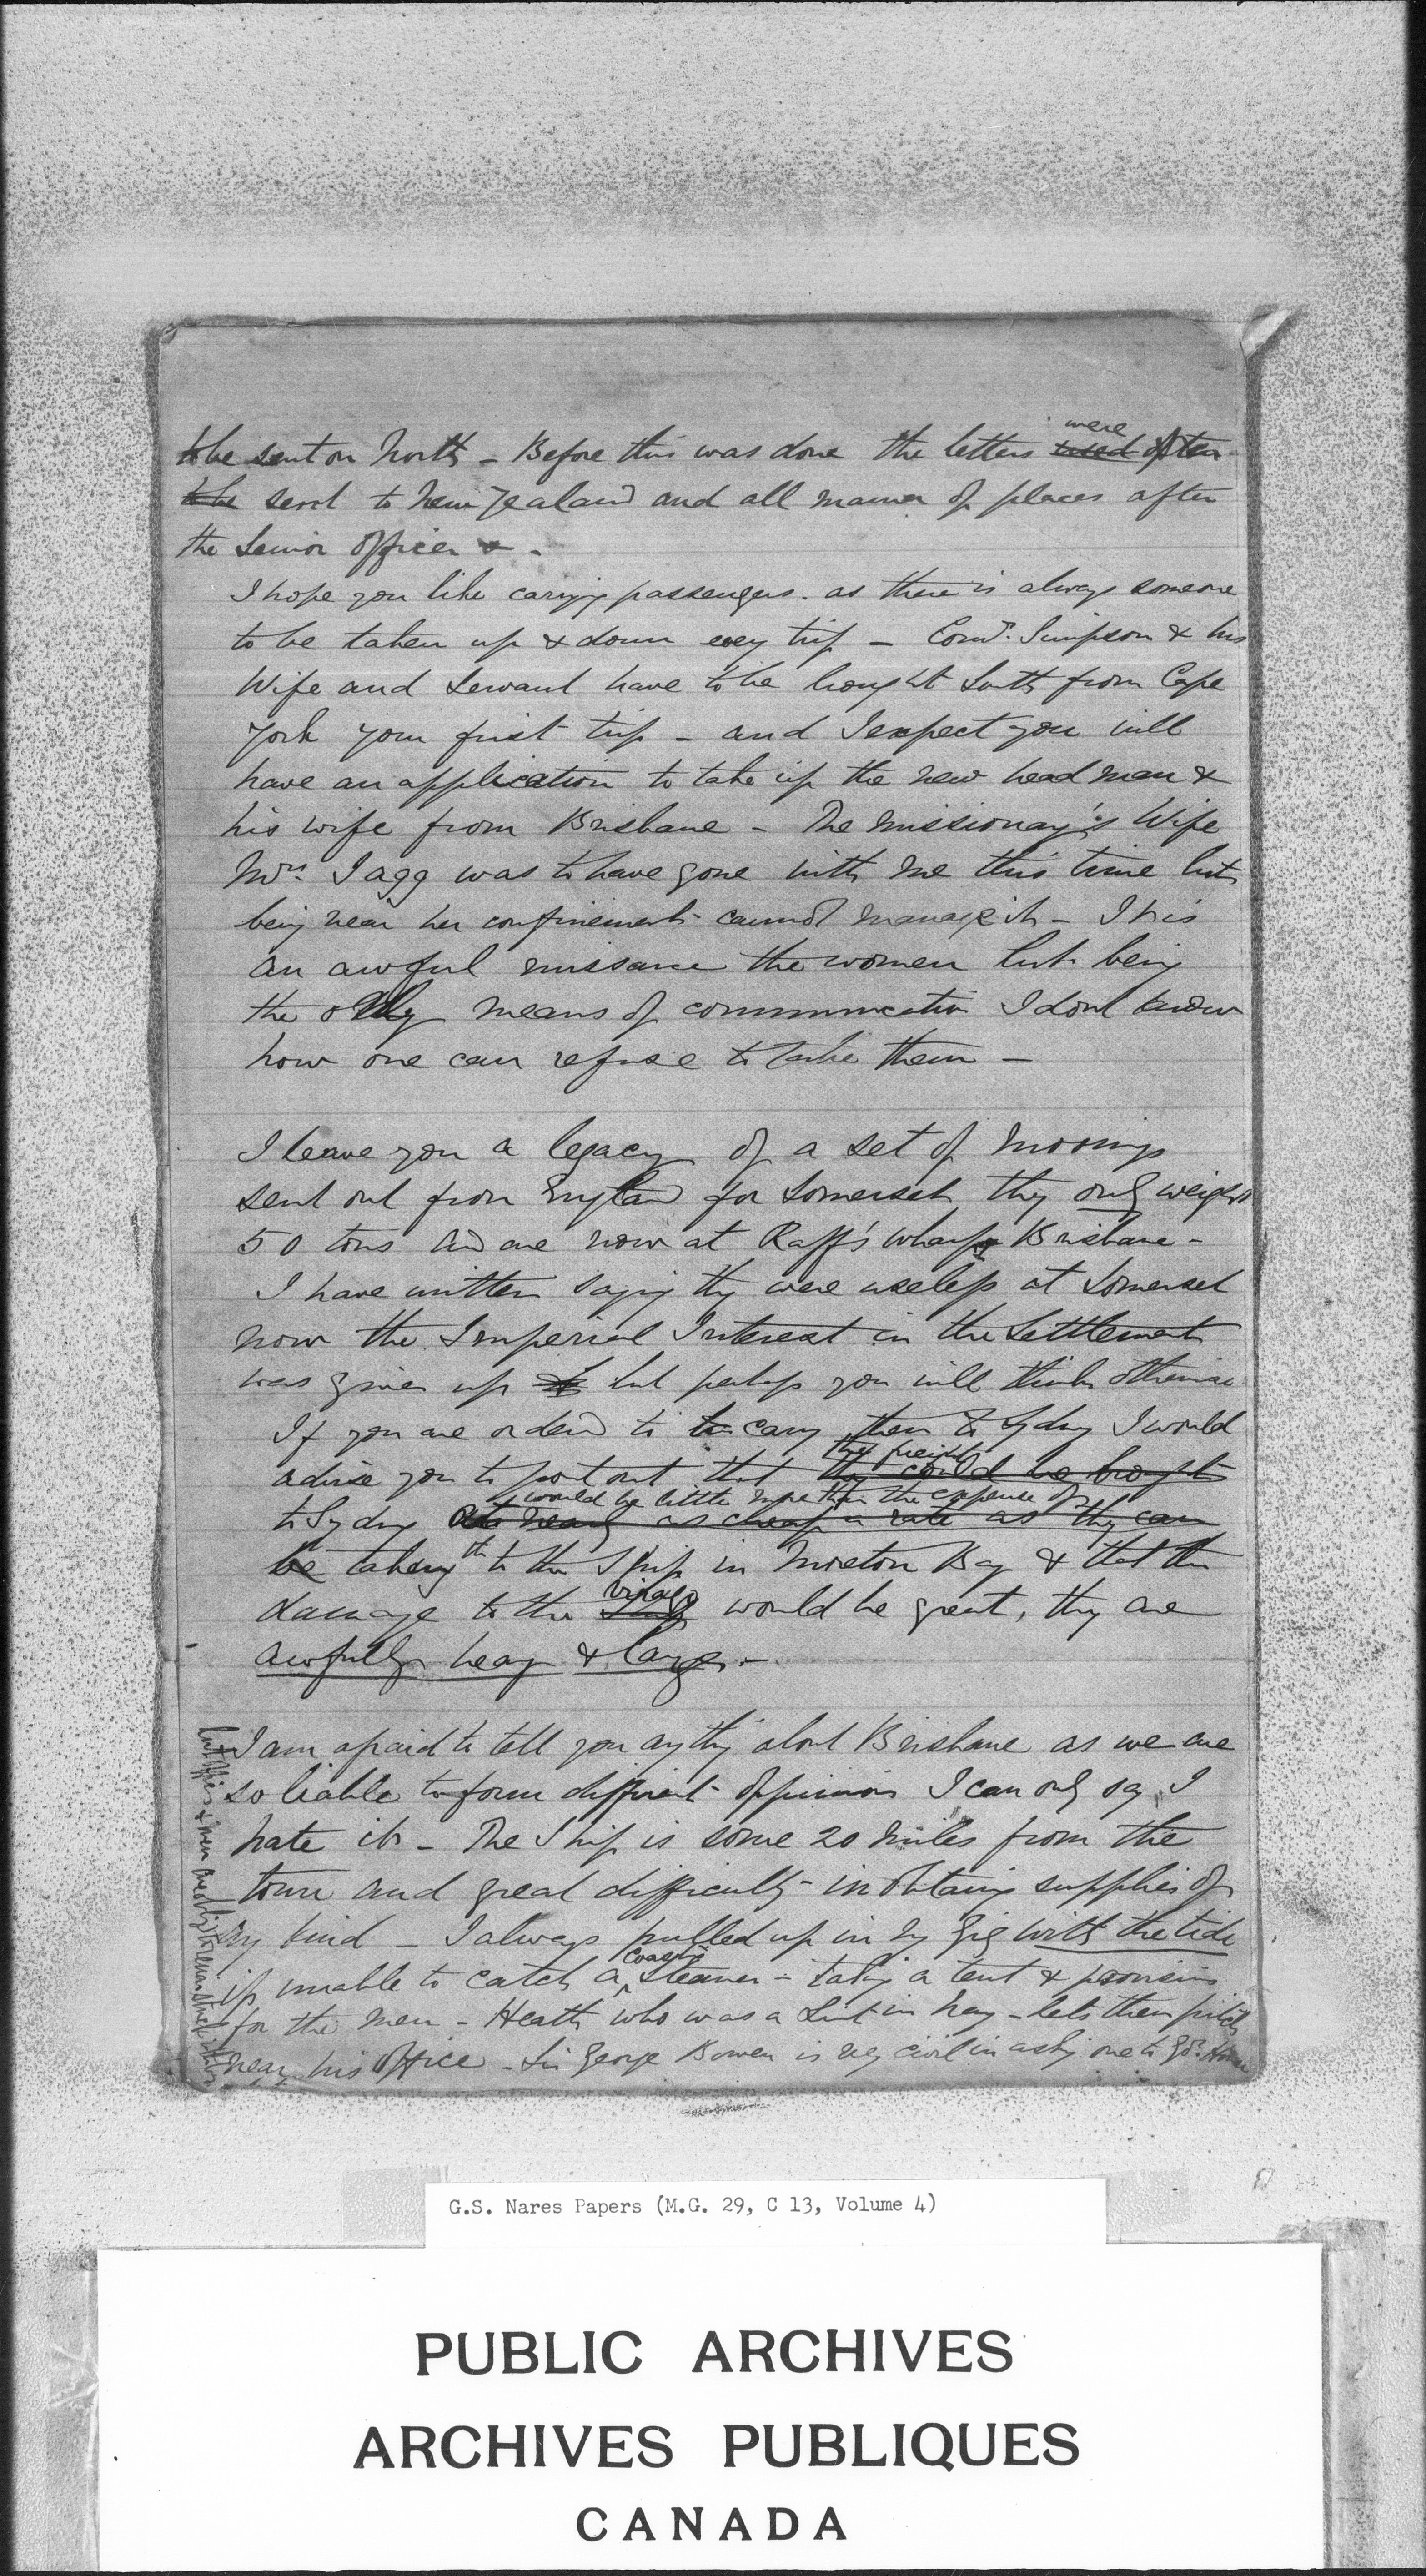 to be sent on North - Before this was done the letters were often
sent to New Zealand and all manner of places after
the Senior Officer & -
I hope you like carryig passengers. as there is always someone
to be taken up & down evey trip - Comr. Simpson & his
Wife and Servant have to be brought South from Cape
York your first trip - and I expect you will
have an application to take up the new head man &
his wife from Brisbane - The Missionay's Wife
Mrs. Jagg was to have gone with me this time but
being near her confinement cannot manage it - It is
an awful nuissance the women but being
the only means of communication I dont know
how one can refuse to take them -
I leave you a legacy of a set of Moorings
sent out from England for Somerset they only weigh
50 tons and are now at Raff's wharf Brisbane -
I have written saying they were useless at Somerset
now the Imperial Interest in the Settlement
was given up but perhaps you will think otherwise
If you are ordered to carry them to Sydney I would
the freight
advise you to point out that they could be brought
would be little more than the expense of
to Sydney at as nearly as cheap a rate as they can
be taking them to the Ship in Moreton Bay & that the
Virago
damage to the Ship would be great, they are
awfully heavy & large. -
I am afraid to tell you anythig about Brisbane as we are
so liable to form different oppinions I can only say I
hate it - The Ship is some 20 miles from the
town and great difficulty in obtaing supplies of
any kind - I always pulled up in my gig with the tide
coastig
if unable to catch a steamer - takig a tent & provisions
for the men - Heath who was a Lieut in Navy - lets them pitch
near his Office - Sir George Bowen is very civil in askig one to Gt. House
but Officers & men are
G.S. Nares Papers (M.G. 29, C 13, Volume 4)
PUBLIC ARCHIVES
ARCHIVES PUBLIQUES
CANADA